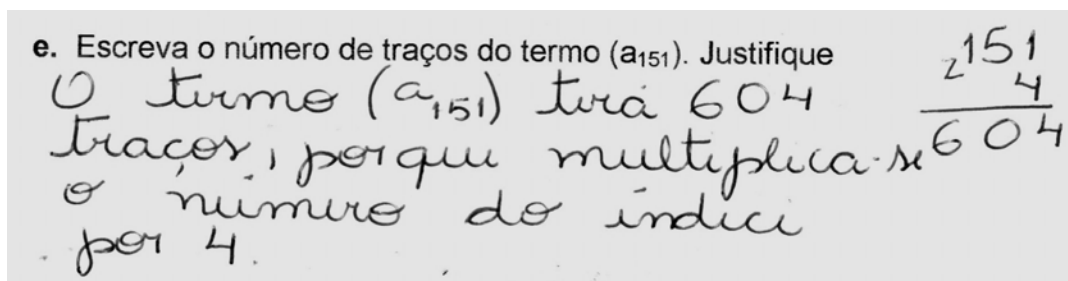 e. Escreva o número de traços do termo (a₁₅₁). Justifique
O termo (a₁₅₁) terá 604
traços, porque multiplica-se
o número do índice
por 4.
2151
4
604